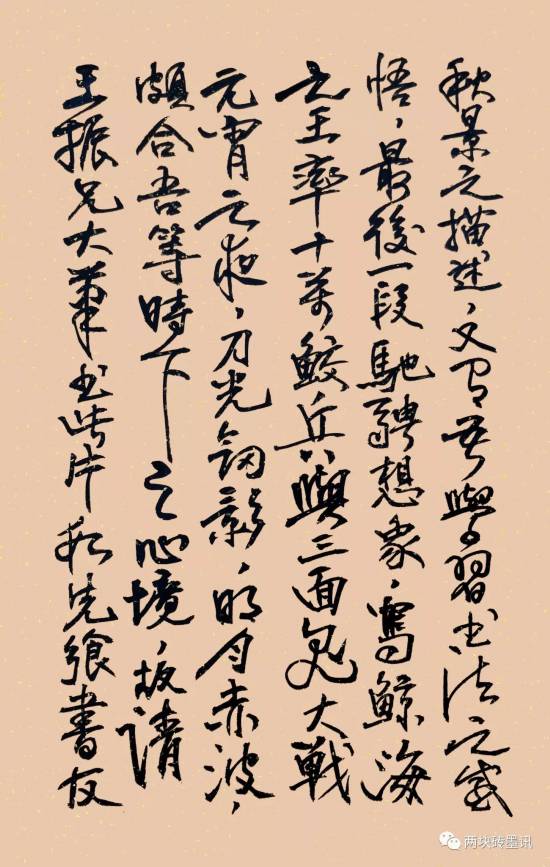 秋景之描述，又有吾與學習书法之感
悟，最後一段馳騁想象，寫鲸海
之王率十萬鲛兵與三面鬼大戰
元宵之夜，刀光劍影，明月赤波，
頗合吾等時下之心境，故請
王振兄大筆书此片段先飨書友
两块砖墨讯